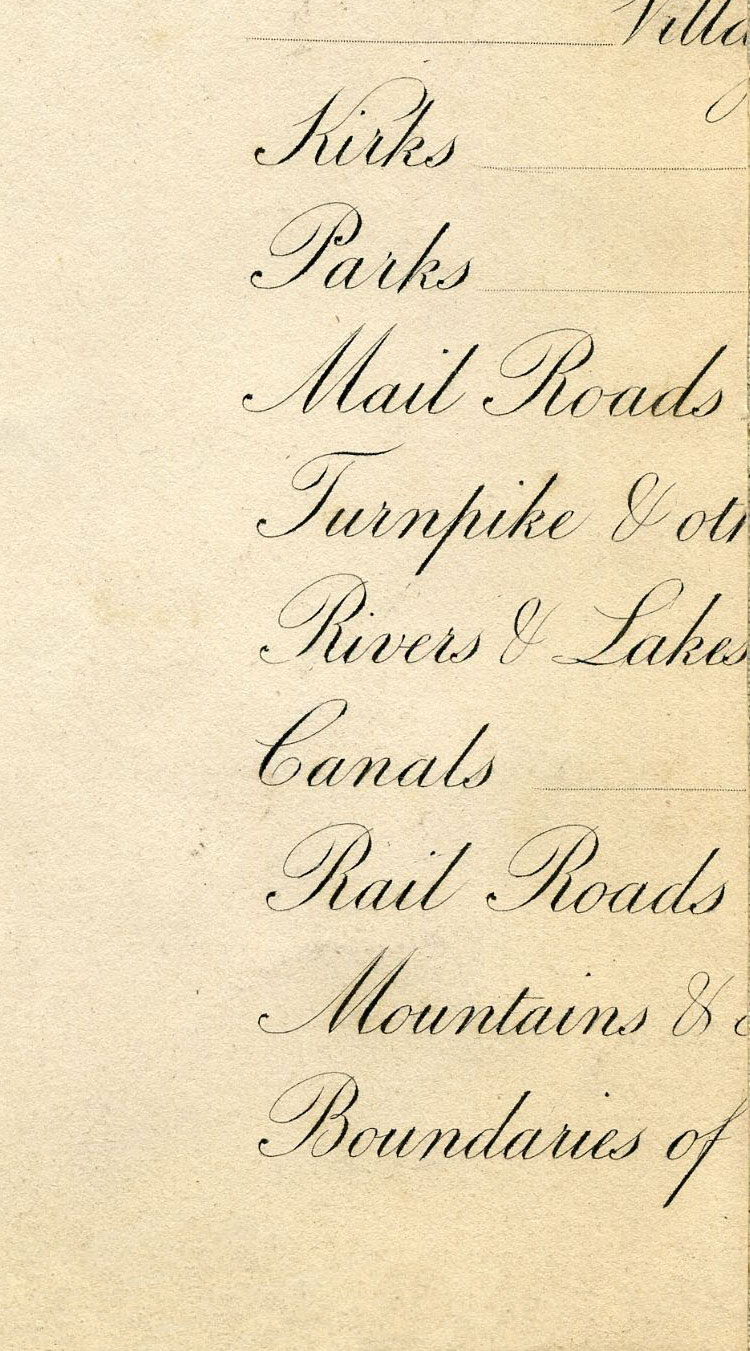 Kirks
Parks
Mail Roads
Turnpike &
Rivers & Lakes
Canals
Rail Roads
Mountains &
Boundaries of